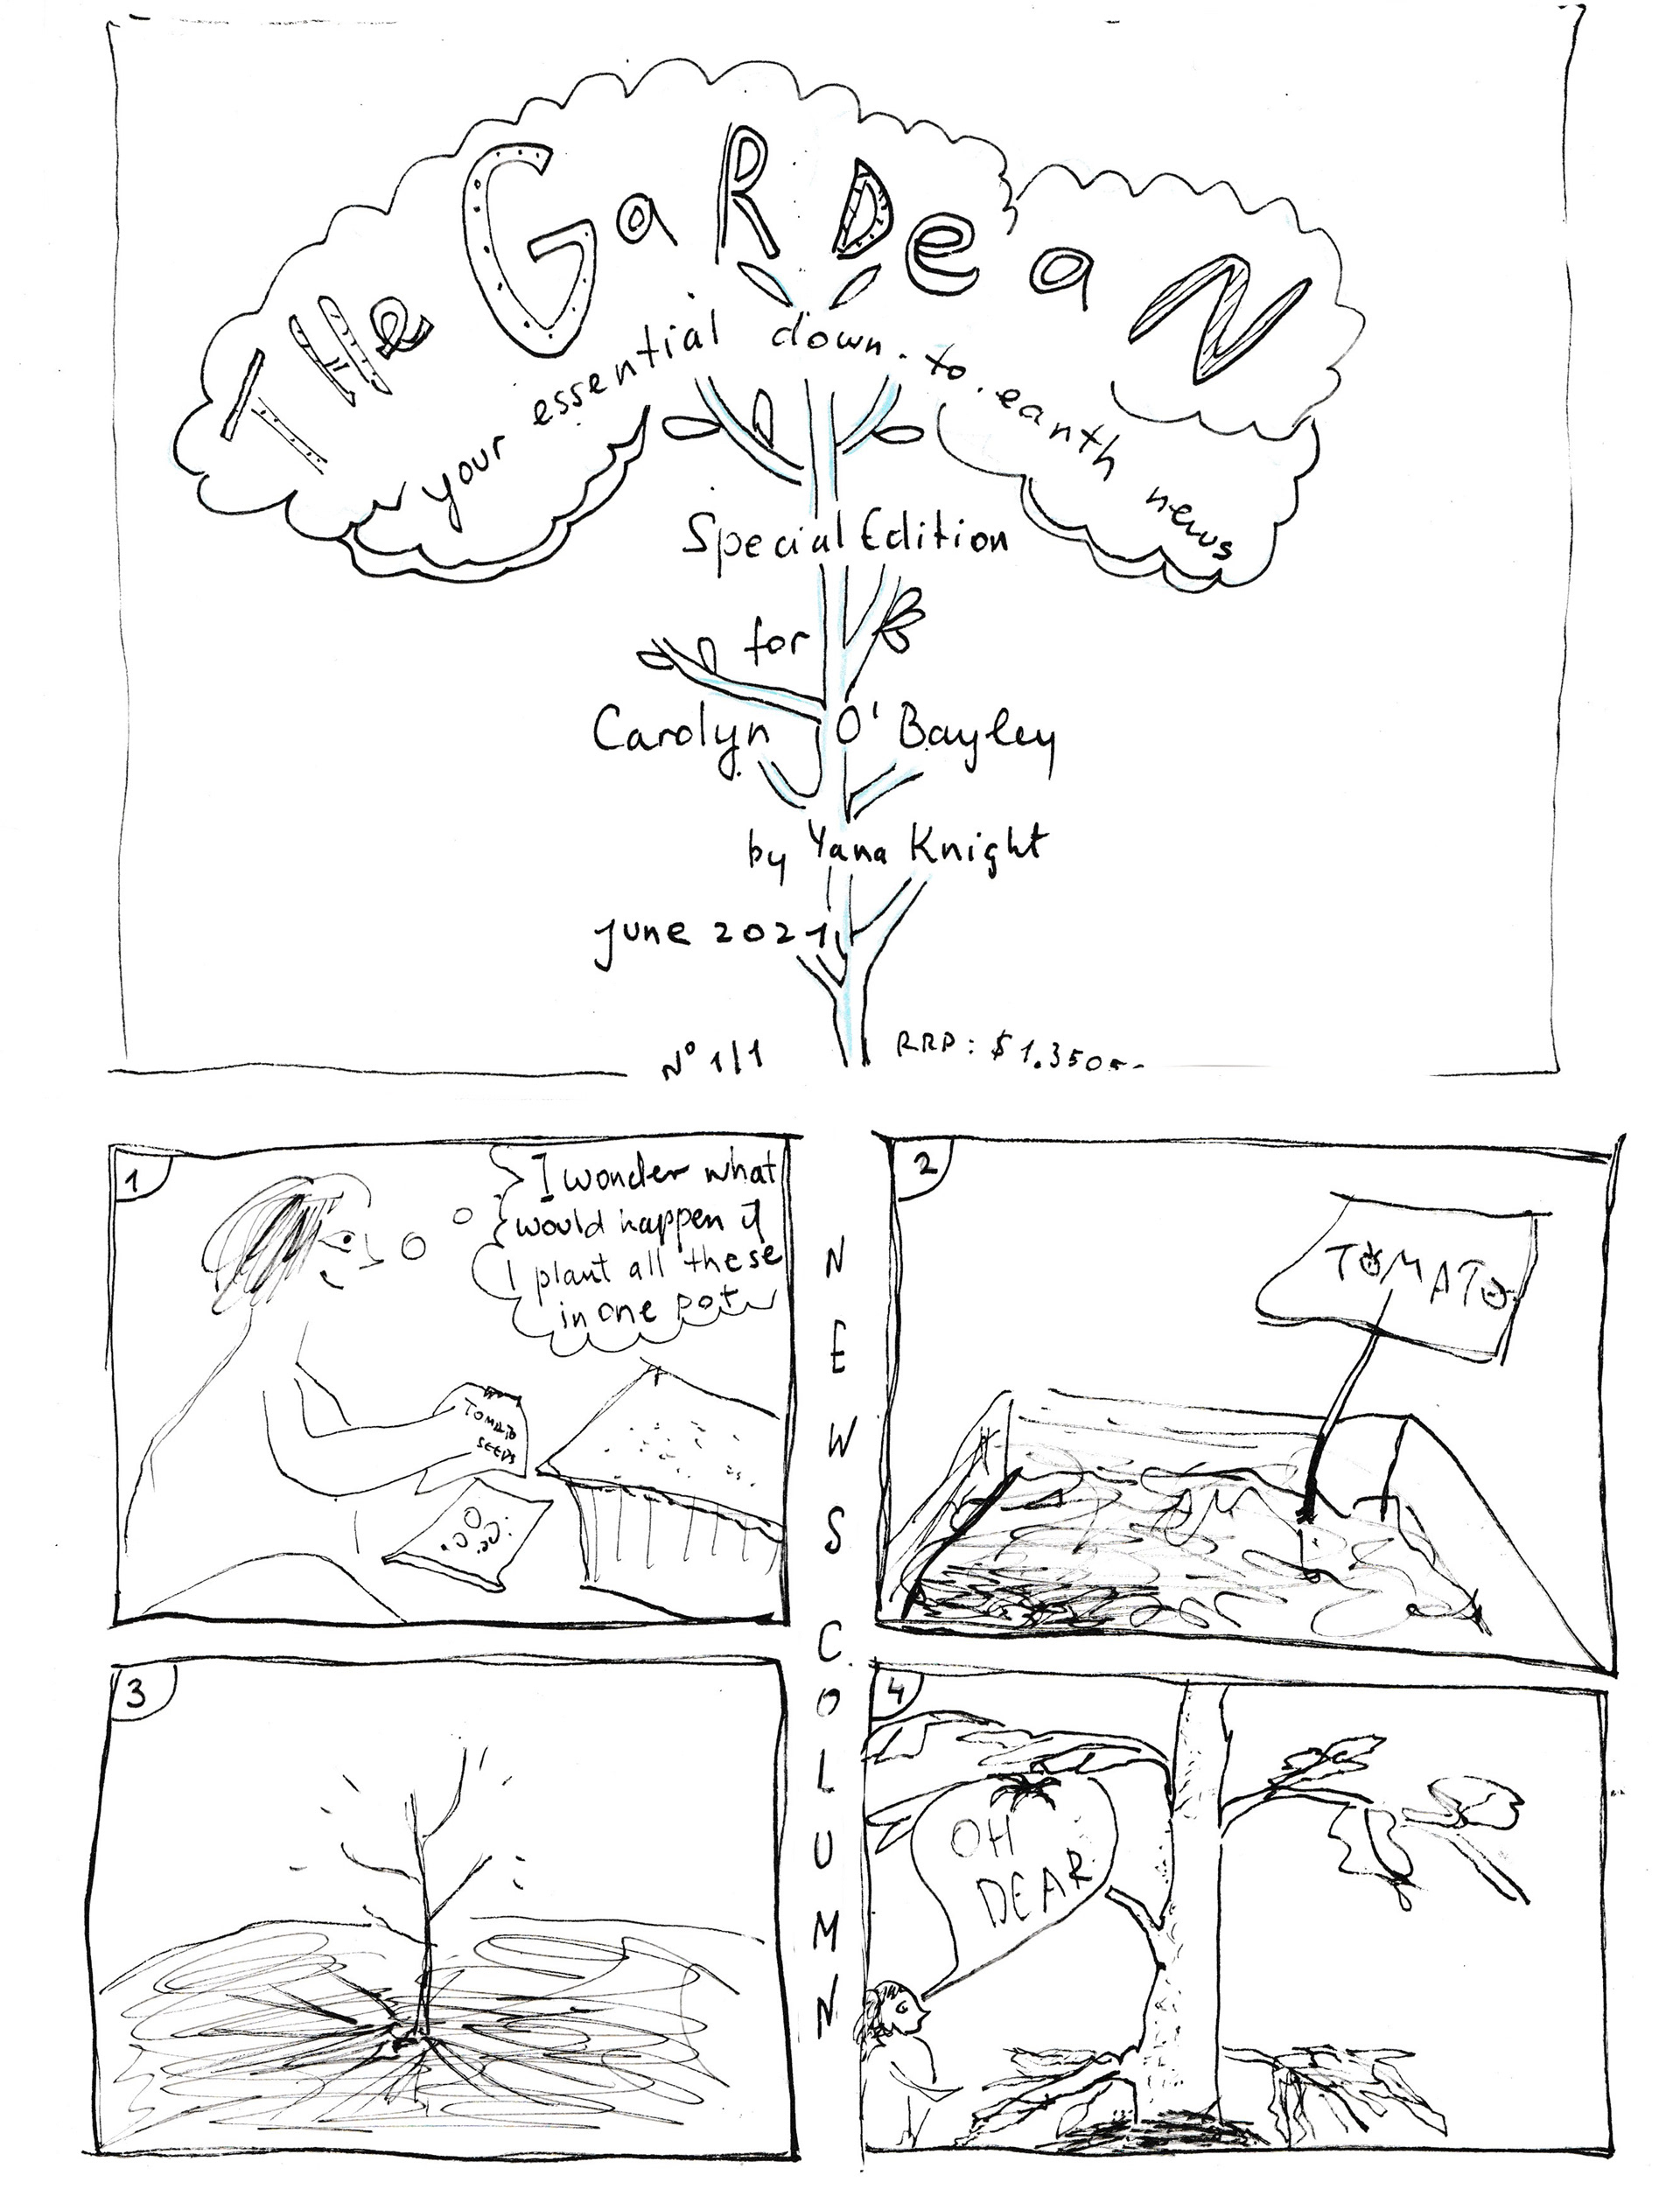 THe GaRDeaN
your essential down.to.earth news
Special Edition
for
Carolyn O'Bayley
by Yana Knight
June 2021
Nº 1/1
RRP: $1.350.--
NEWS COLUMN
1
I wonder what
would happen if
I plant all these
in one pot
TOMATO
SEEDS
2
TOMATO
3
4
OH
DEAR